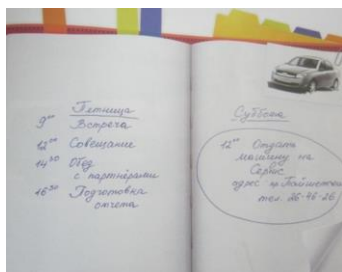 Пятница
9⁰⁰ Встреча
12⁰⁰ Совещание
14³⁰ Обед
с партнёрами
16³⁰ Подготовка
отчета
Суббота
12⁰⁰ Отдать
машину на
Сервис
адрес пр.
тел. 26-46-26